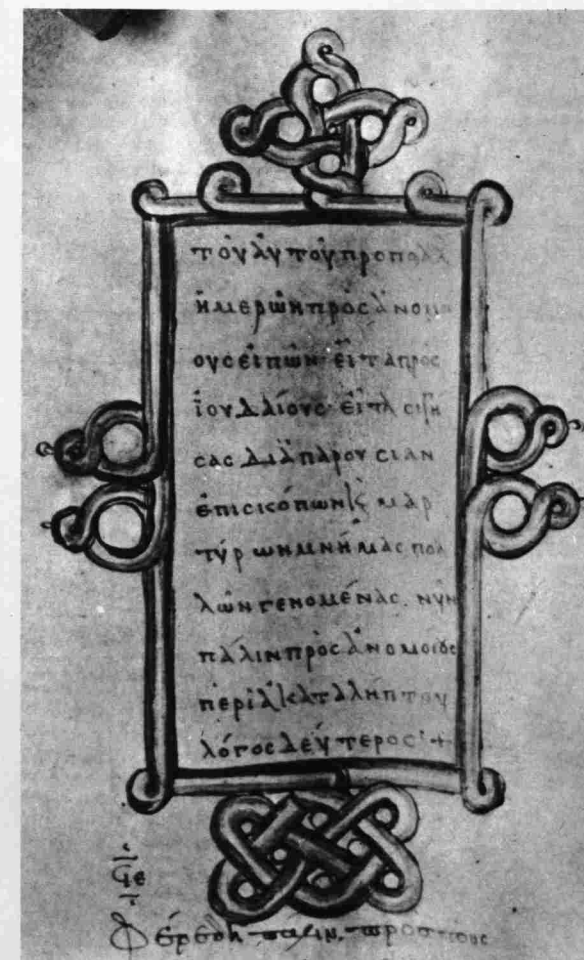 τοῦ αὐτοῦ προπολλ
ἡμερῶν πρὸς ἀνομοι
ους εἰπὼν· εἶτα πρὸς
ἰουδαίους· εἶτα σιγή
σας διὰ παρουσίαν
ἐπισκόπων ϗ μαρ
τύρων μνήμας πολ
λῶν γενομένας. νῦν
πάλιν πρὸς ἀνομοίους
περὶ ἀκαταλήπτου
λόγος δεύτερος· +
Φέρε δὴ πάλιν, πρὸς τοὺς